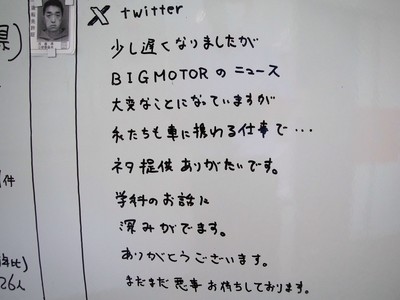 X twitter
少し遅くなりましたが
BIGMOTORのニュース
大変なことになっていますが
私たちも車に携わる仕事で・・・
ネタ提供ありがたいです。
学科のお話に
深みがでます。
ありがとうございます。
まだまだ悪事お待ちしております。
県)
件
年比)
26人